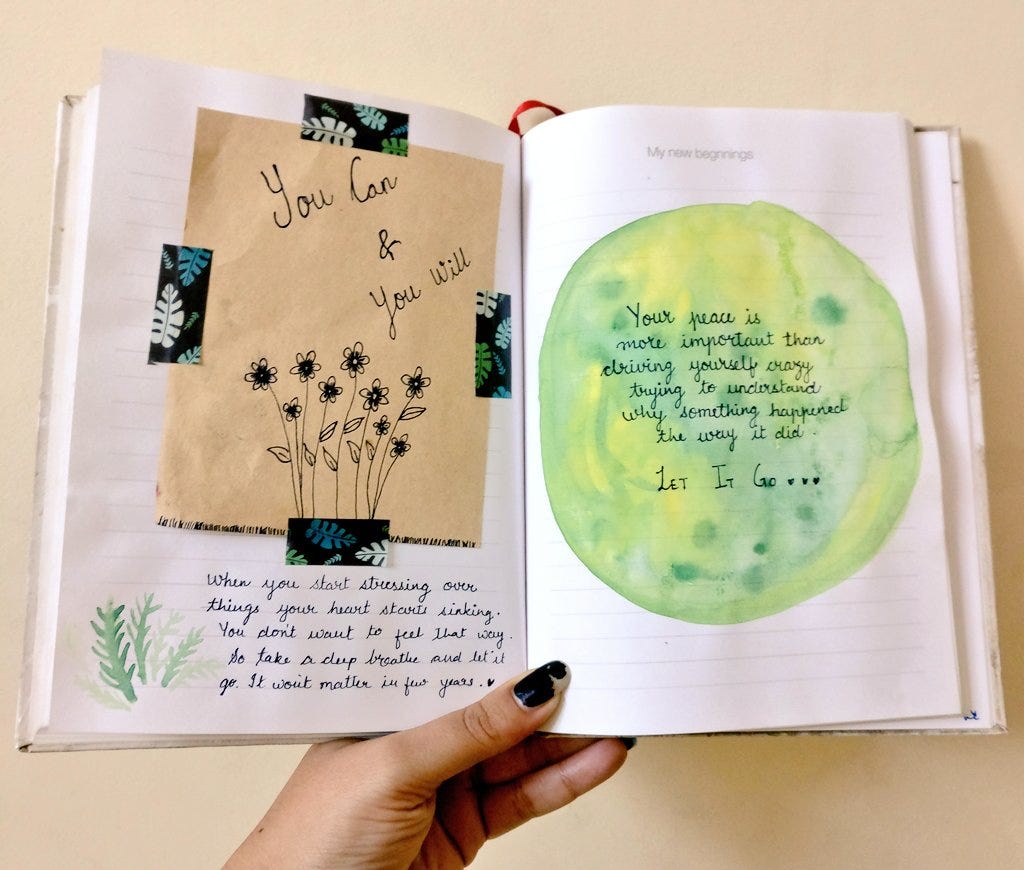 You Can
&
You Will
When you start stressing over
things your heart starts sinking.
You don't want to feel that way.
So take a deep breathe and let it
go. It won't matter in few years. ♥
My new begnnings
Your peace is
more important than
driving yourself crazy
trying to understand
why something happened
the way it did.
LET IT GO ♥♥♥